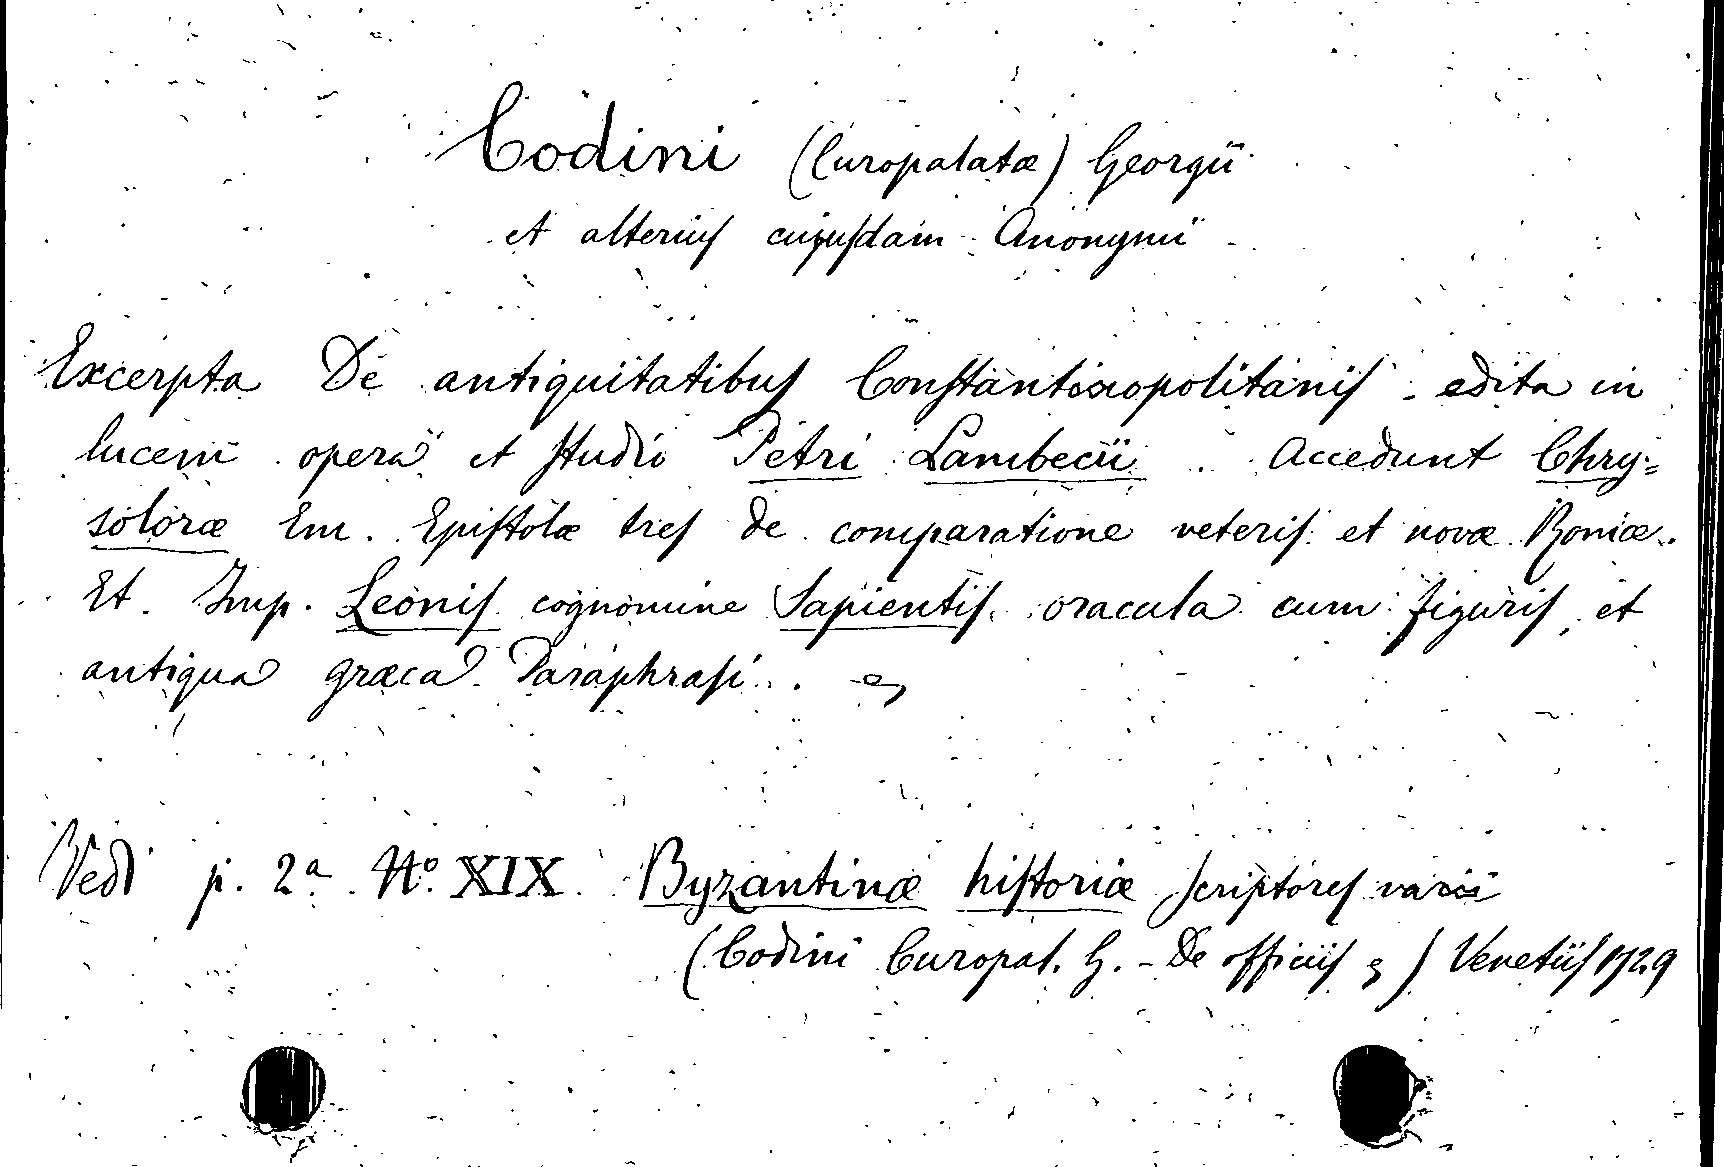 Codini (Curopalatæ) Georgii
et alterius cujusdam Anonymi
Excerpta De antiquitatibus Constantinopolitanis edita in
lucem opera et studio Petri Lambecii. Accedunt Chry=
soloræ Em. Epistolæ tres de comparatione veteris et novæ Romæ.
Et. Imp. Leonis cognomine Sapientis oracula cum figuris, et
antiqua græca Paraphrasi.
Vedi p. 2a No. XIX. Byzantinæ historiæ scriptores varii
(Codini Curopal. G. - De officiis) Venetiis 1729